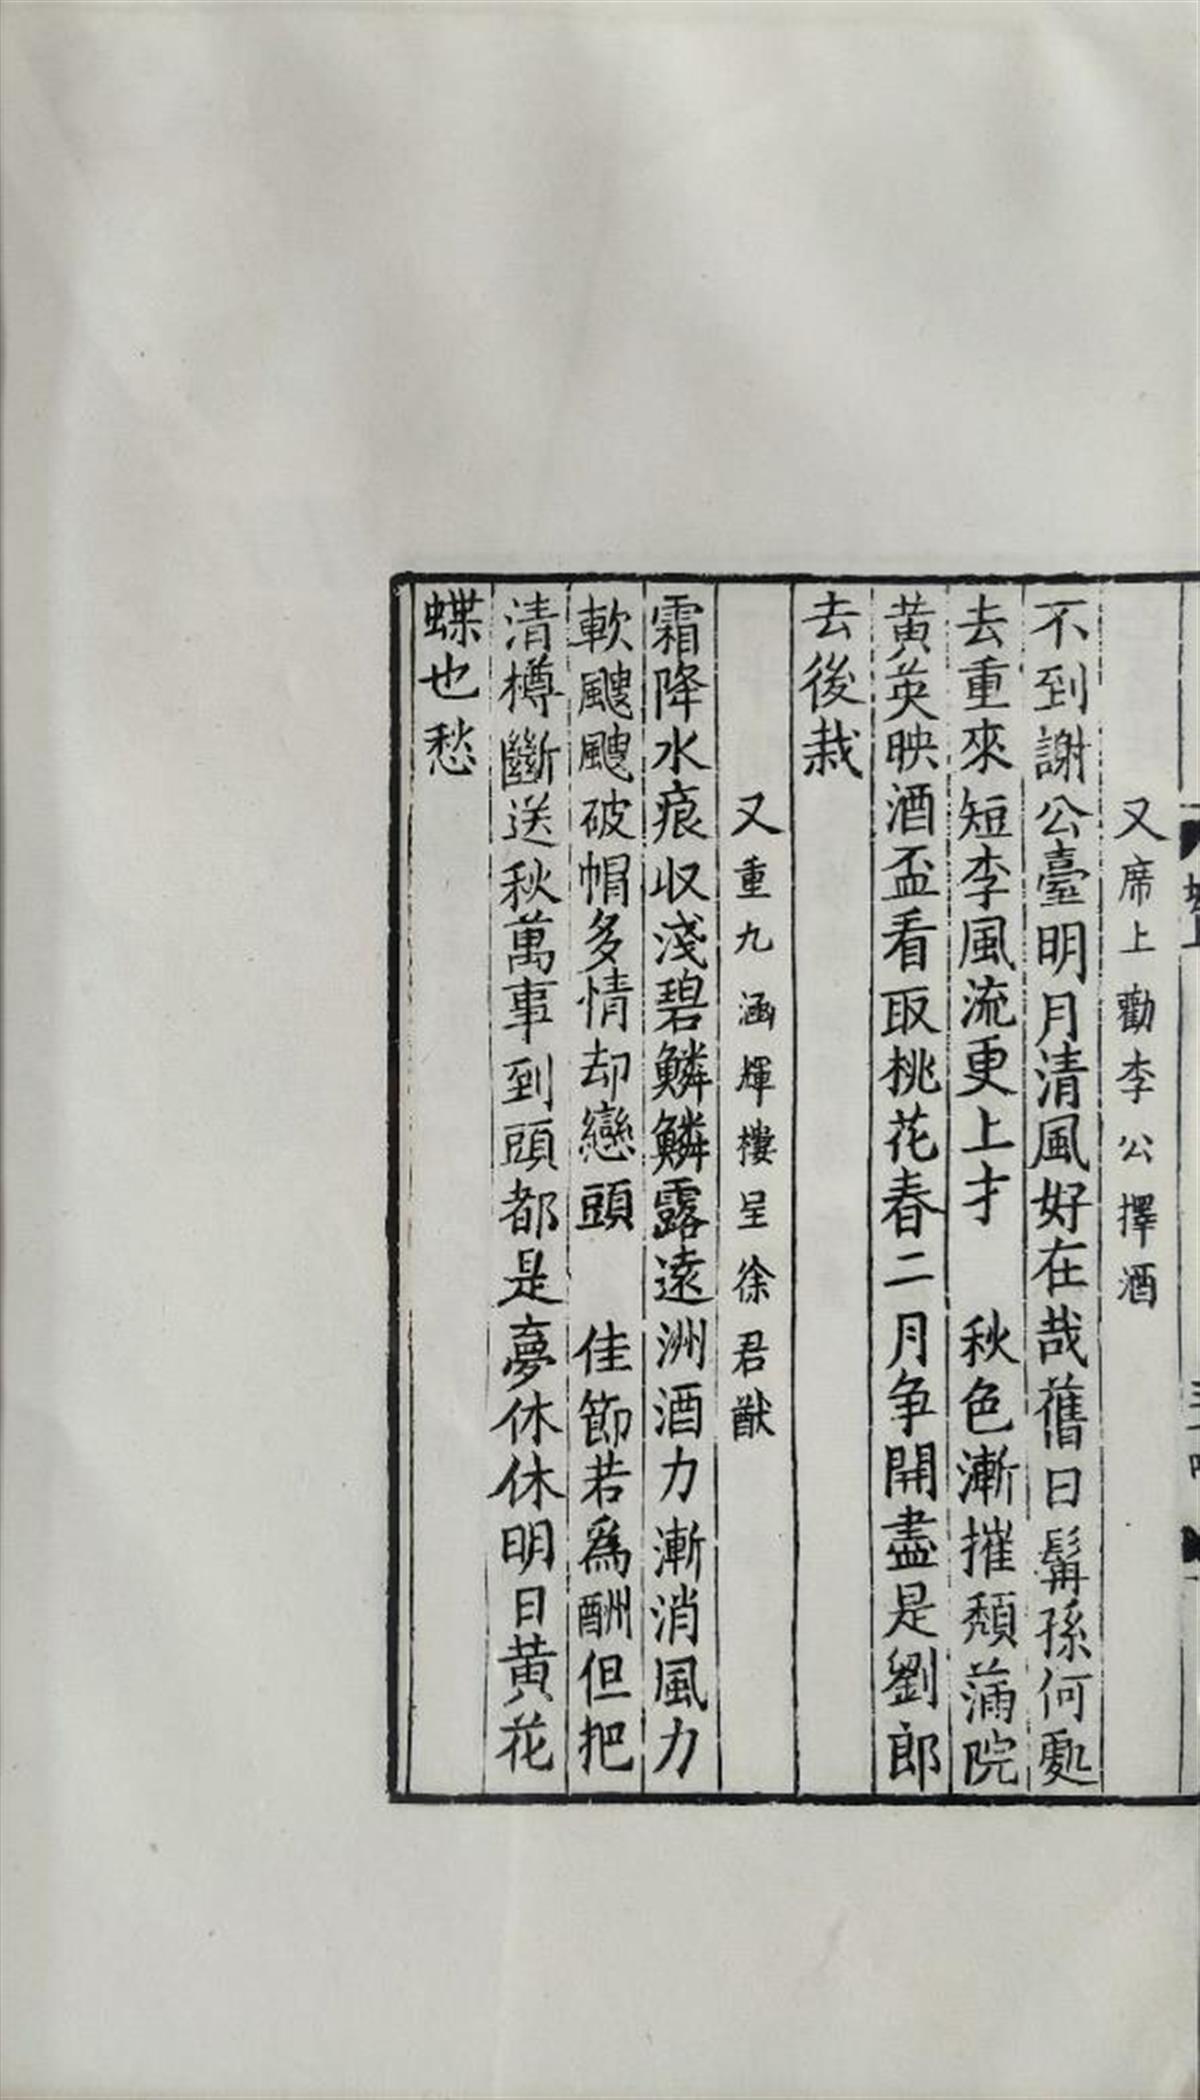 又席上勸李公擇酒
不到謝公臺明月清風好在哉舊日髯孫何處
去重來短李風流更上才　秋色漸摧頽蒲院
黄英映酒盃看取桃花春二月争開盡是劉郎
去後栽
又重九涵輝樓呈徐君猷
霜降水痕收淺碧鱗鱗露遠洲酒力漸消風力
軟颼颼破帽多情却戀頭　佳節若爲酬但把
清樽斷送秋萬事到頭都是夢休休明日黄花
蝶也愁